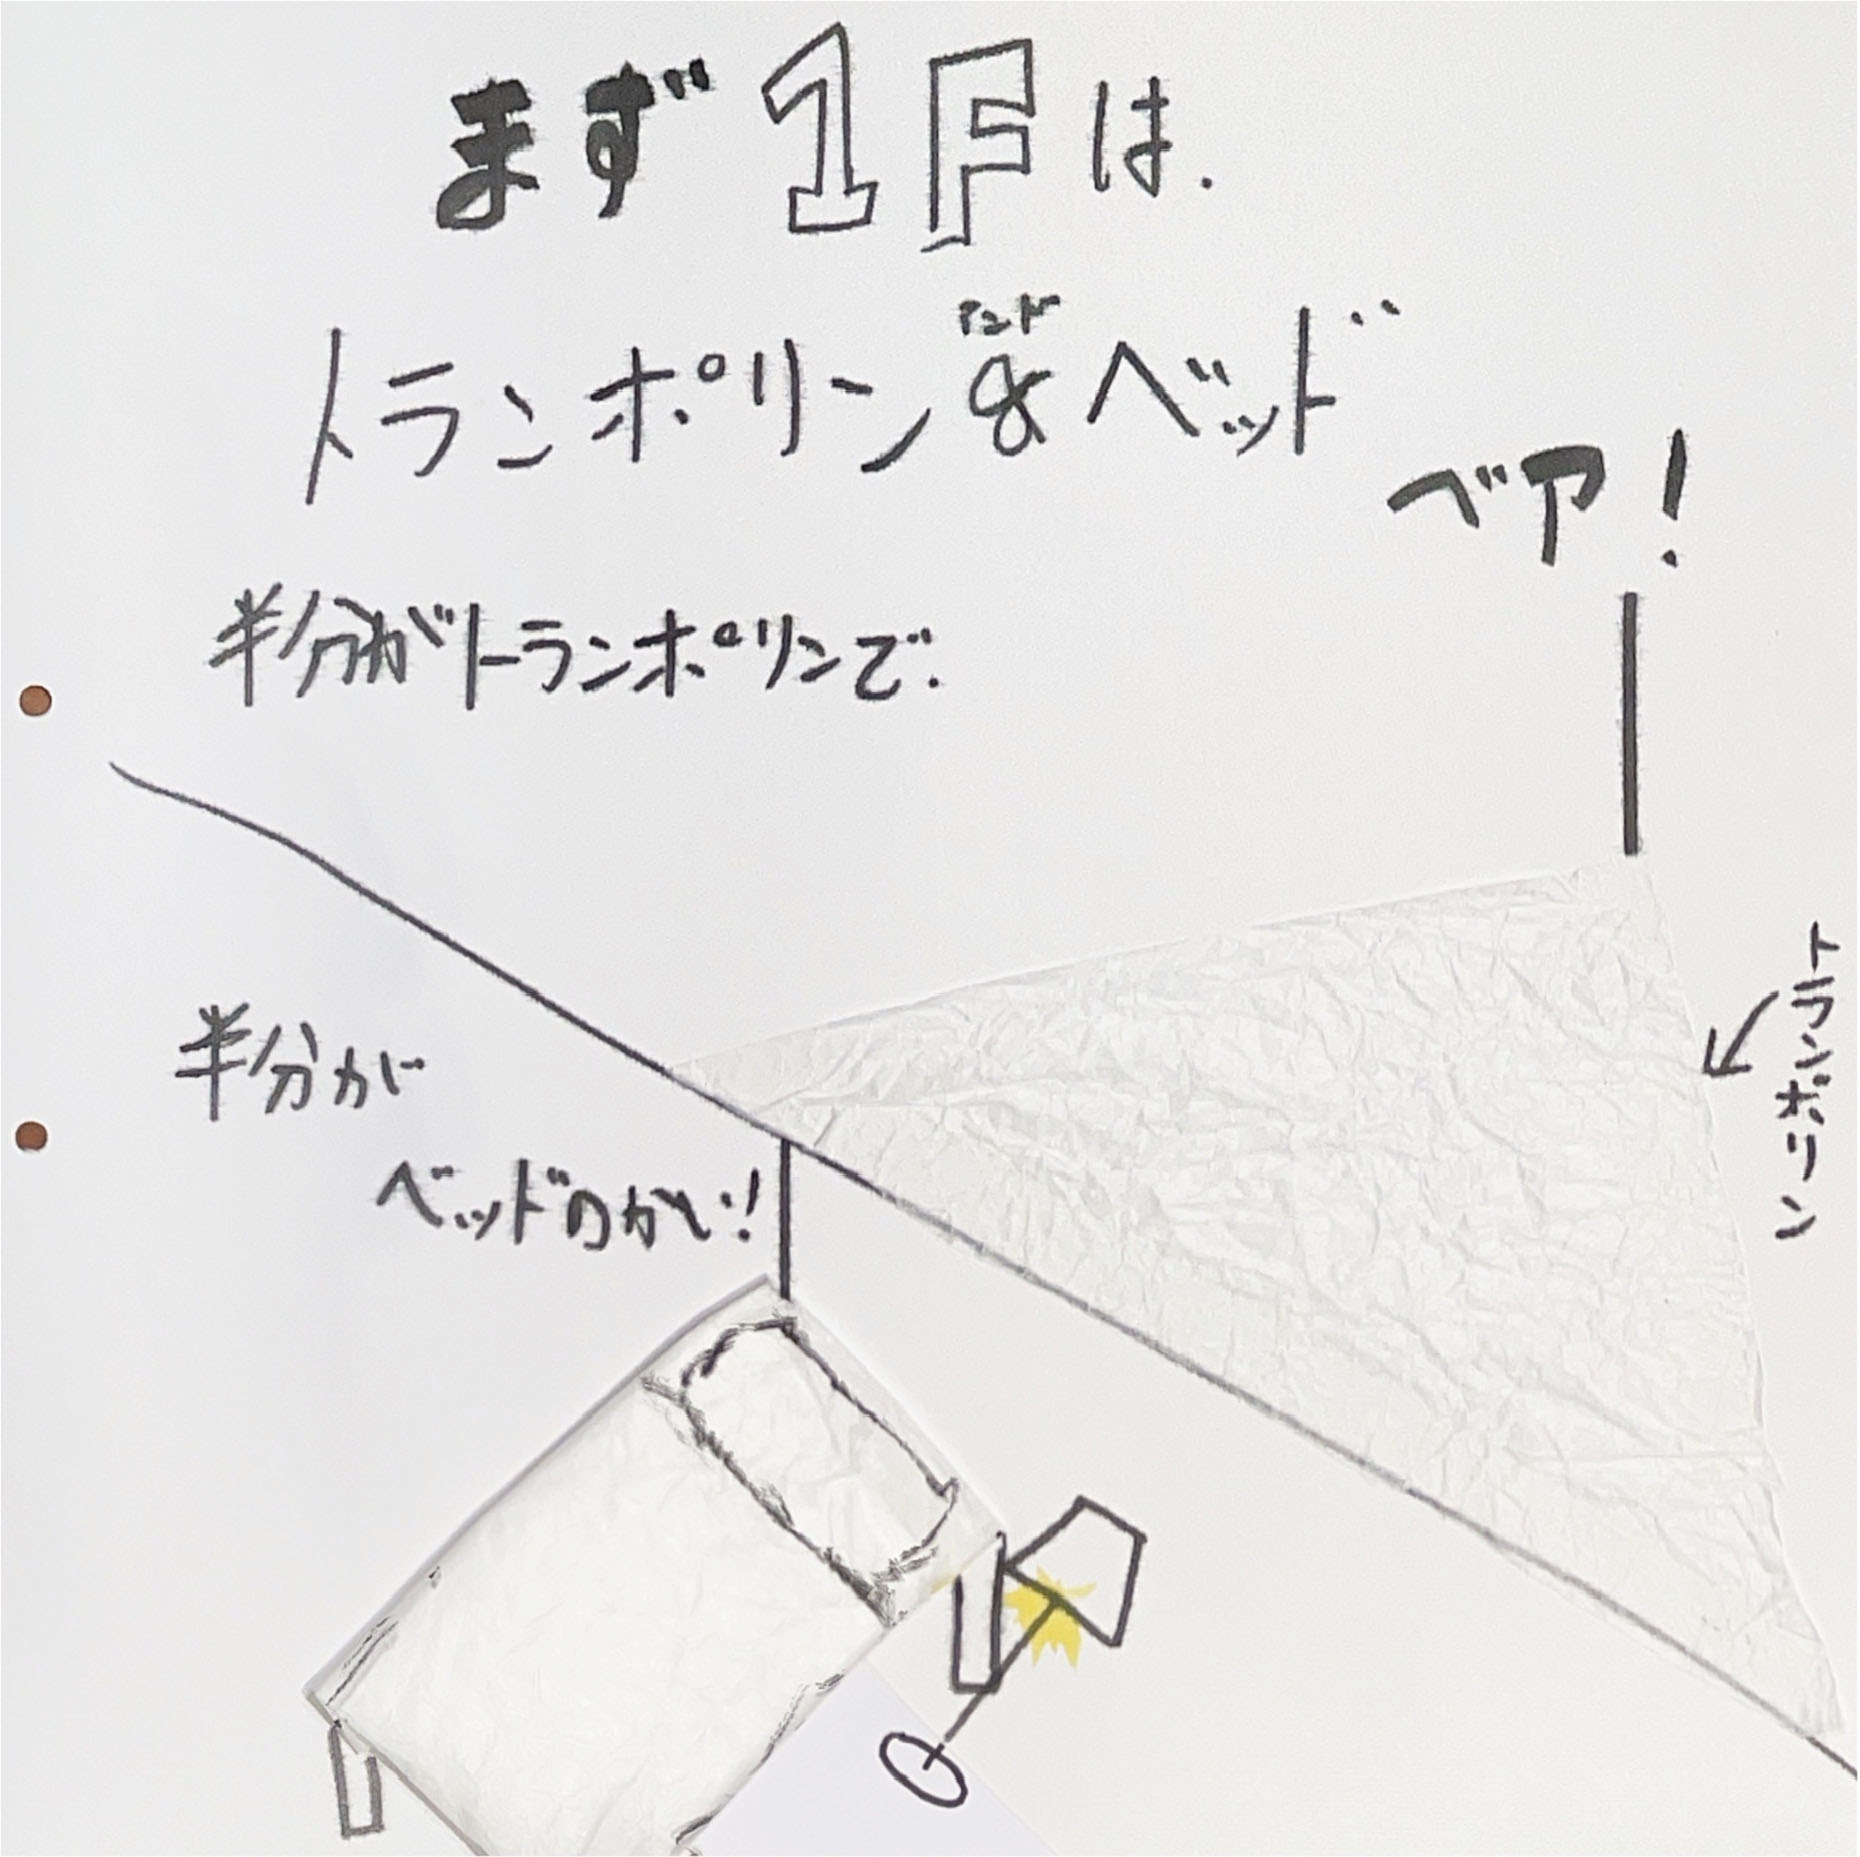 まず1Fは.
アンド
トランポリン&ベッド
ベア!
半分がトランポリンで.
半分が
ベッドのかい!
トランポリン